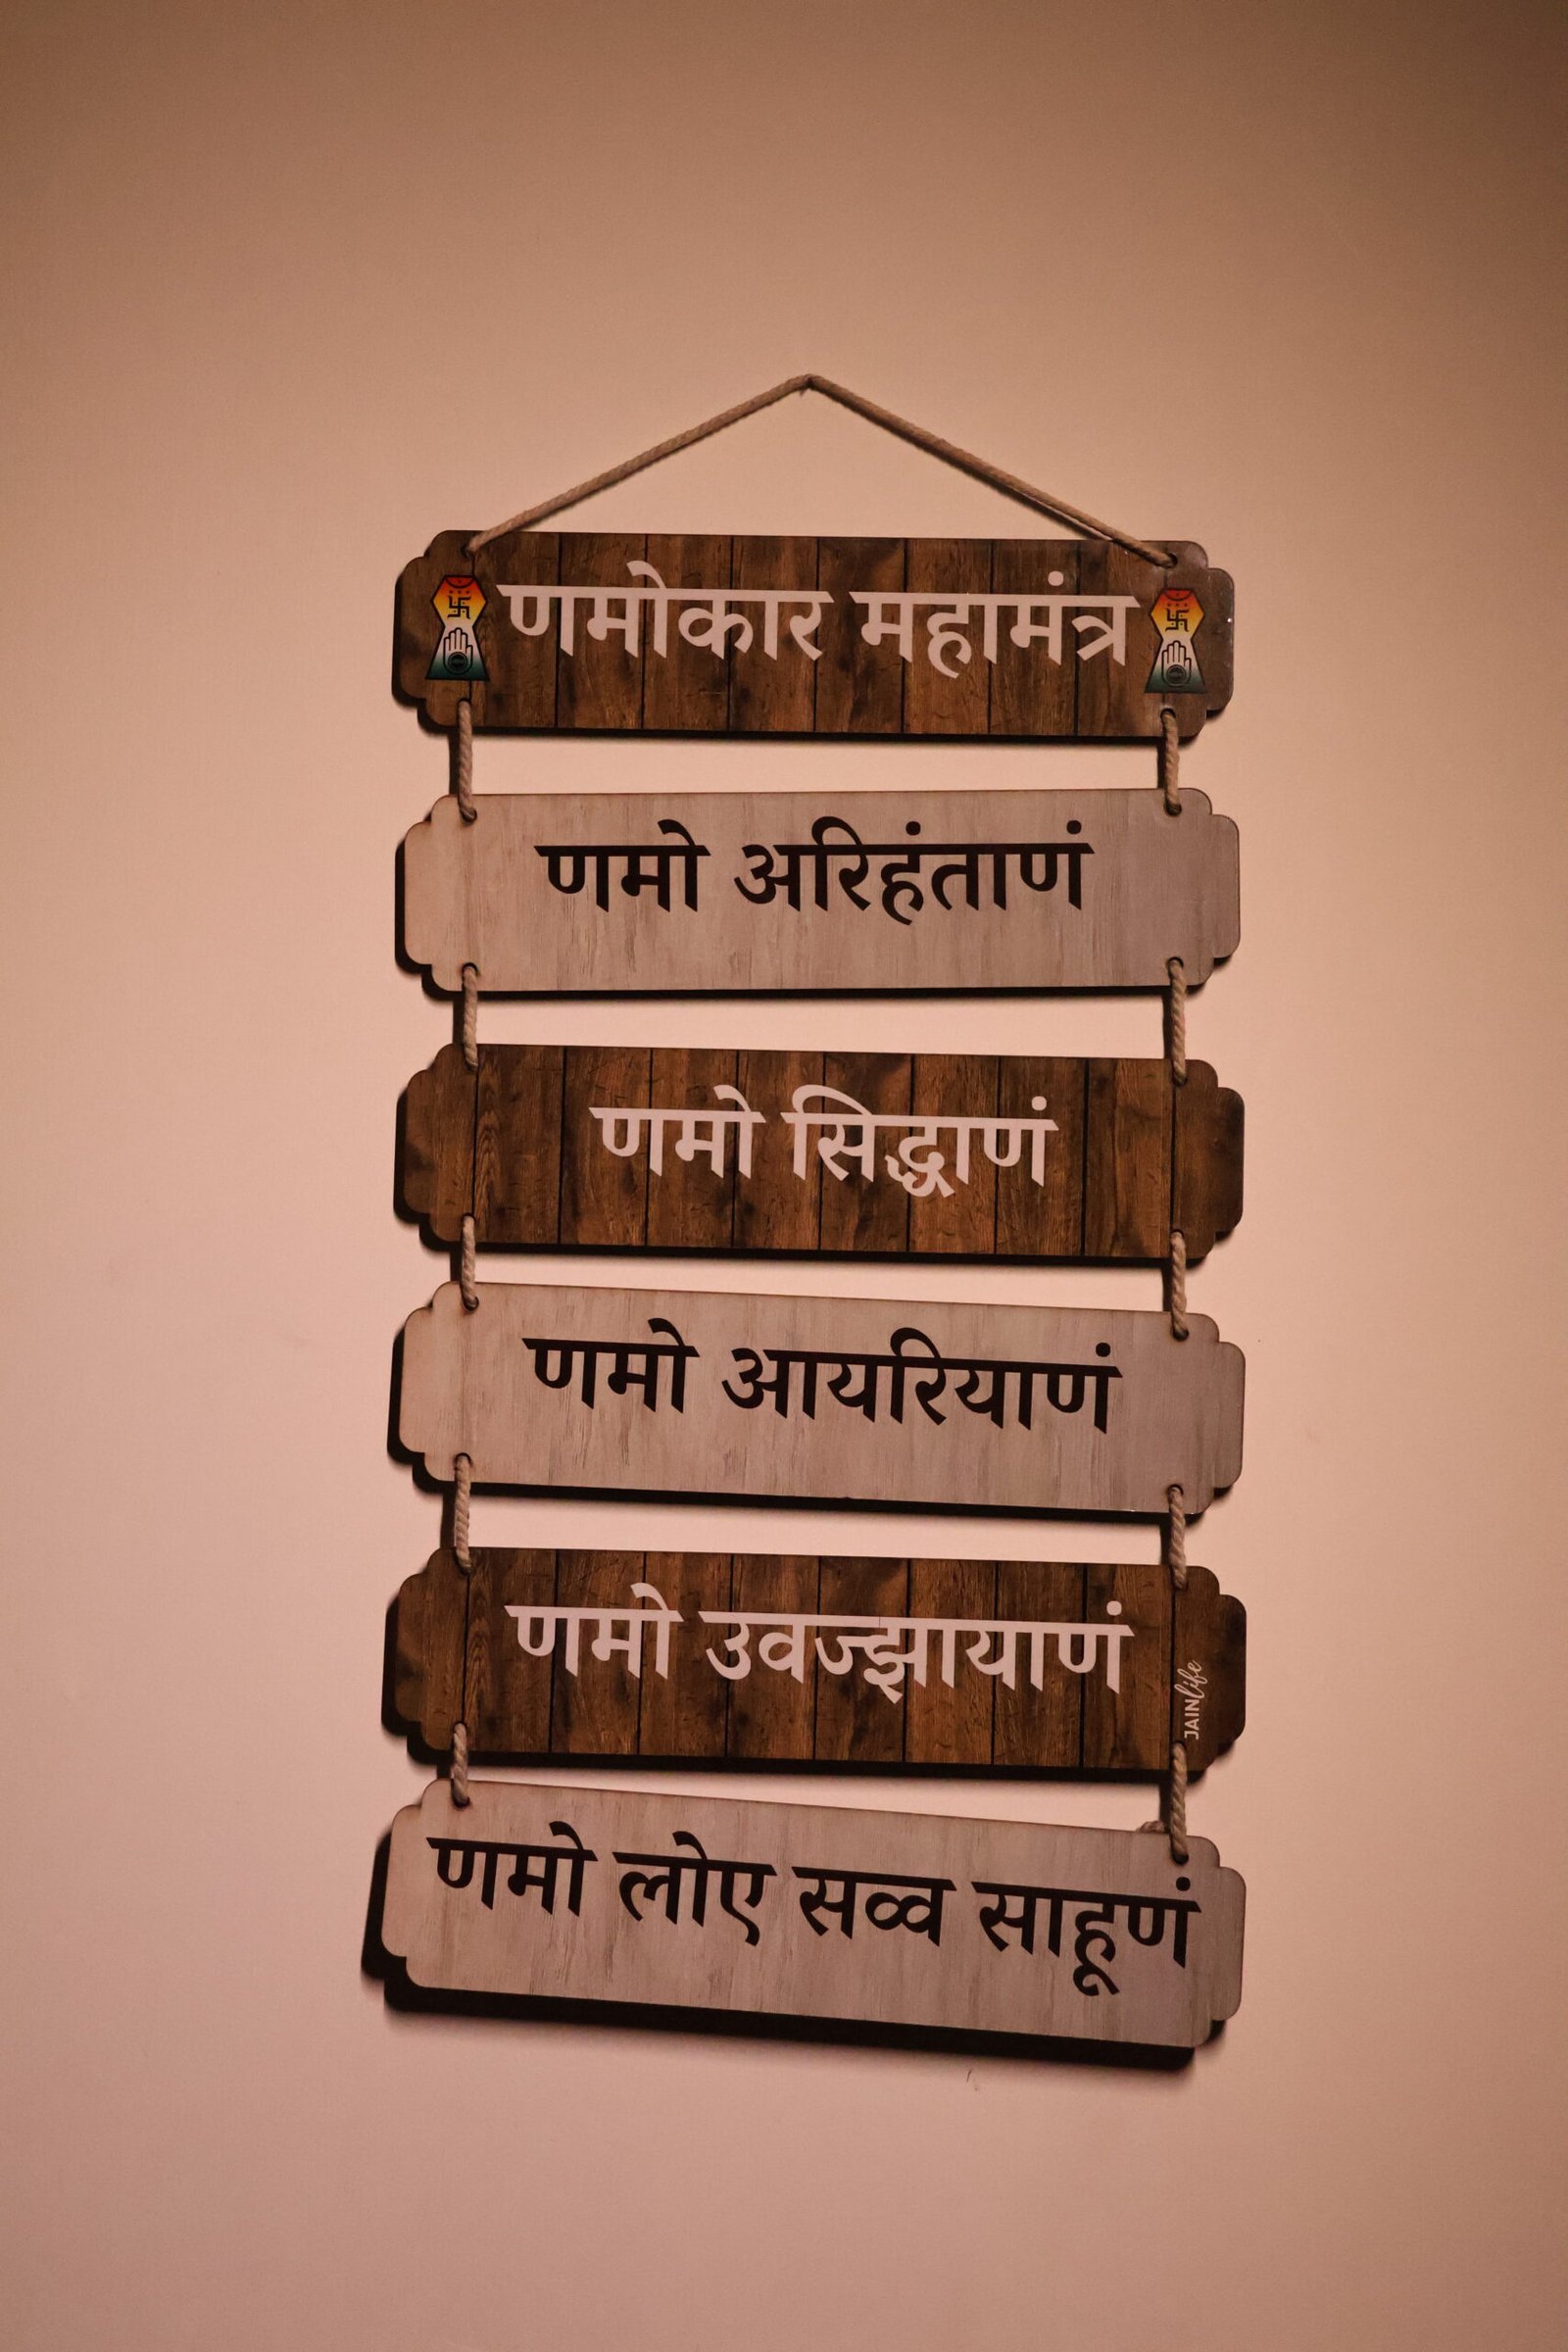 णमोकार महामंत्र
णमो अरिहंताणं
णमो सिद्धाणं
णमो आयरियाणं
णमो उवज्झायाणं
JAINlife
णमो लोए सव्व साहूणं